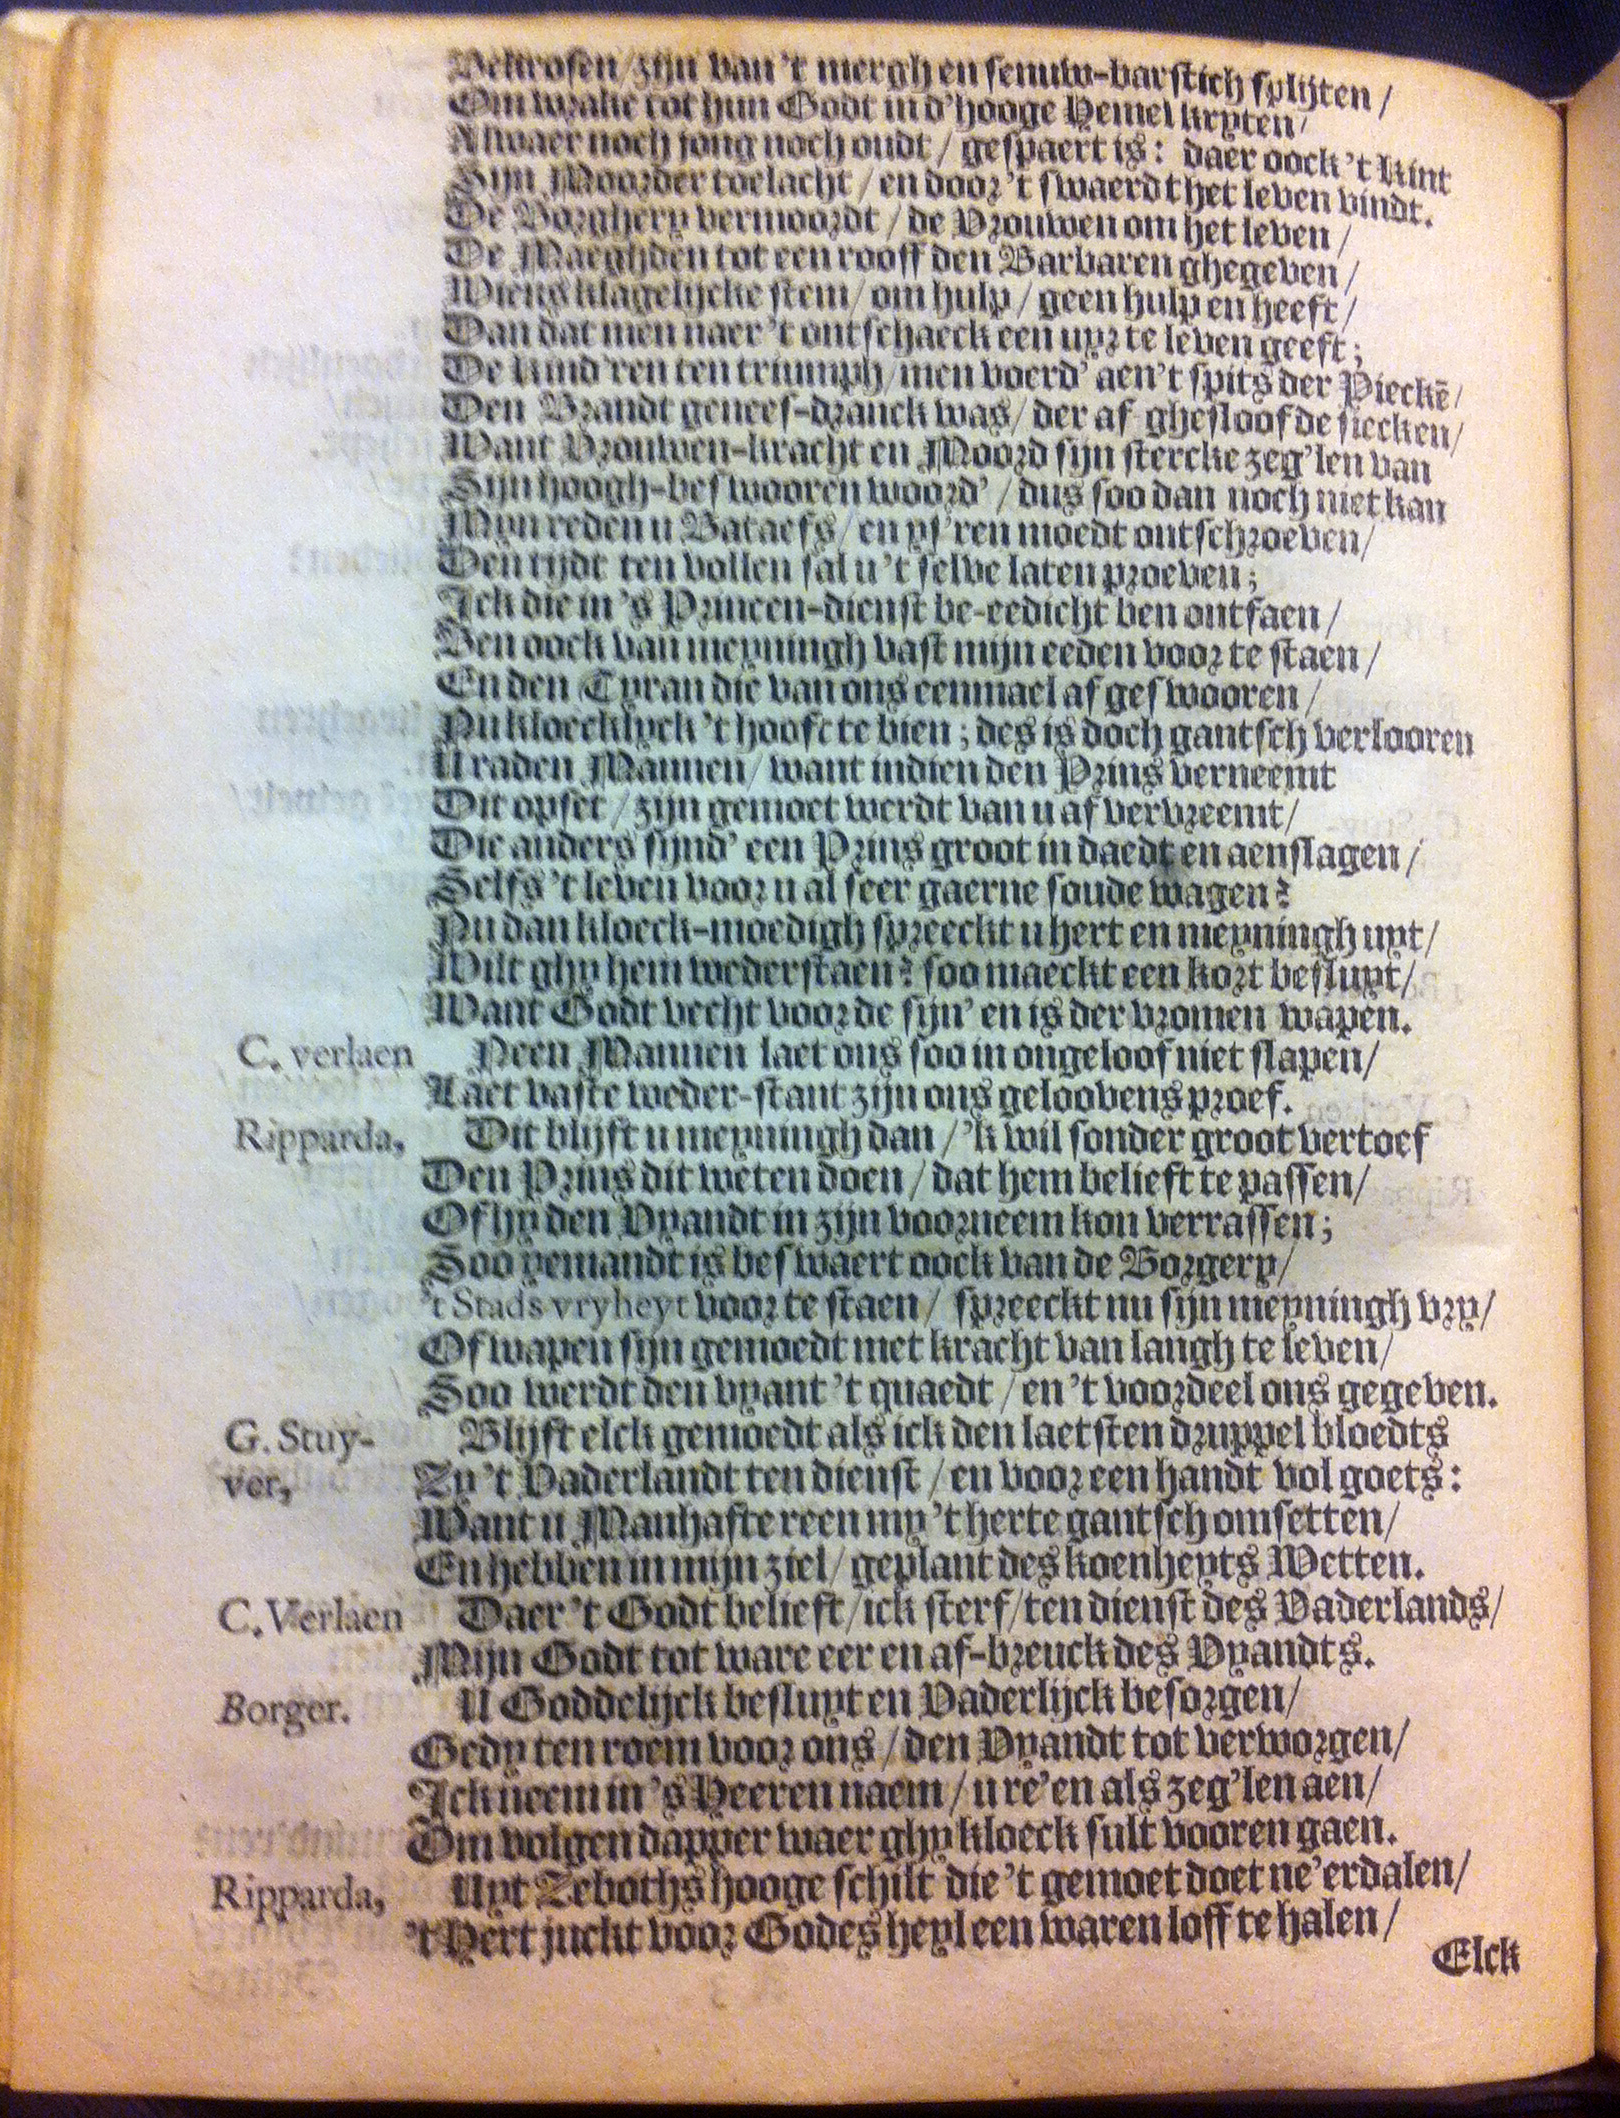 Bekrosen / zijn van 't mergh en senuw-barstich splijten /
Om wrake tot hun Godt in d' hooge Hemel kryten /
Alwaer noch jong noch oudt / gespaert is: daer oock 't kint
Zijn Moorder toelacht / en door 't swaerdt het leven vindt.
De Borghery vermoordt / de Vrouwen om het leven /
De Maeghden tot een rooff den Barbaren ghegeven /
Wiens klagelijcke stem / om hulp / geen hulp en heeft /
Dan dat men naer 't ontschaeck een uyr te leven geeft;
De kind'ren ten triumph / men voerd' aen 't spits der Pieckē /
Den Brandt genees-dranck was / der af ghesloofde siecken /
Want Vrouwen-kracht en Moord sijn stercke zeg'len van
Zijn hoogh-beswooren woord' / dus soo dan noch niet kan
Myn reden u Bataefs / en ys'ren moedt ontschroeven /
Den tijdt ten vollen sal u 't selve laten proeven;
Ick die in 's Princen-dienst be-eedicht ben ontfaen /
Ben oock van meyningh vast mijn eeden voor te staen /
En den Tyran die van ons eenmael afgeswooren /
Nu kloecklyck 't hooft te bien; des is doch gantsch verlooren
U raden Mannen / want indien den Prins verneemt
Dit opset / zijn gemoet werdt van u af vervreemt /
Die anders sijnd' een Prins groot in daedt en aenslagen /
Selfs 't leven voor u al seer gaerne soude wagen?
Nu dan kloeck-moedigh spreeckt u hert en meyningh uyt /
Wilt ghy hem wederstaen? soo maeckt een kort besluyt /
Want Godt vecht voor de sijn' en is der vromen wapen.
C. verlaen Neen Mannen laet ons soo in ongeloof niet slapen /
Laet vaste weder-stant zijn ons geloovens proef.
Ripparda, Dit blijft u meyningh dan / 'k wil sonder groot vertoef
Den Prins dit weten doen / dat hem belieft te passen /
Of hy den Vyandt in zijn voorneem kon verrassen;
Soo yemandt is beswaert oock van de Borgery /
't Stads vryheyt voor te staen / spreeckt nu sijn meyningh vry /
Of wapen sijn gemoedt met kracht van langh te leven /
Soo werdt den vyant 't quaedt / en 't voordeel ons gegeven.
G. Stuy- Blijft elck gemoedt als ick den laetsten druppel bloedts
ver, Zy 't Vaderlandt ten dienst / en voor een handt vol goets:
Want u Manhafte reen my 't herte gantsch omsetten /
En hebben in mijn ziel / geplant des koenheyts Wetten.
C. Verlaen Daer 't Godt belieft / ick sterf / ten dienst des Vaderlands /
Mijn Godt tot ware eer en af-breuck des Vyandts.
Borger. U Goddelijck besluyt en Vaderlijck besorgen /
Gedy ten roem voor ons / den Vyandt tot verworgen /
Ick neem in 's Heeren naem / u re'en als zeg'len aen /
Om volgen dapper waer ghy kloeck sult vooren gaen.
Ripparda, Uyt Zeboths hooge schilt die 't gemoet doet ne'erdalen /
't Hert juckt voor Godes heyl een waren loff te halen /
Elck